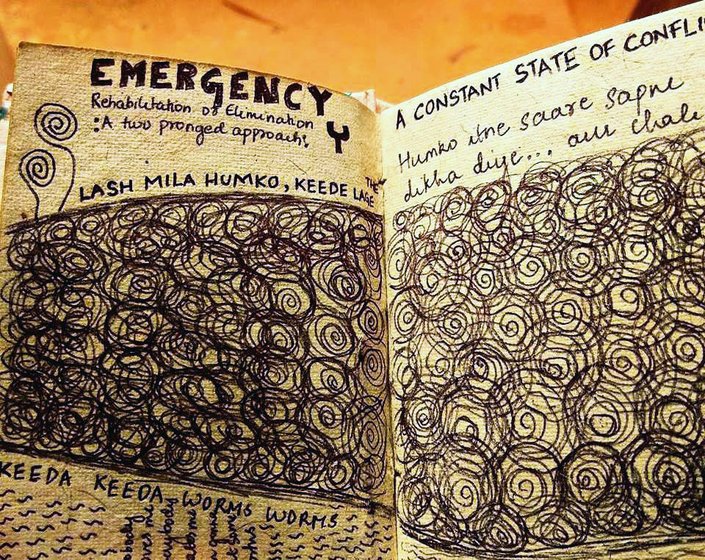 EMERGENCY
Rehabilitation or Elimination
:A two pronged approach;
Y
LASH MILA HUMKO, KEEDE LAGE THE
KEEDA KEEDA WORMS WORMS
A CONSTANT STATE OF CONFLI
Humko itne saare sapne
dikha diye... aur chale